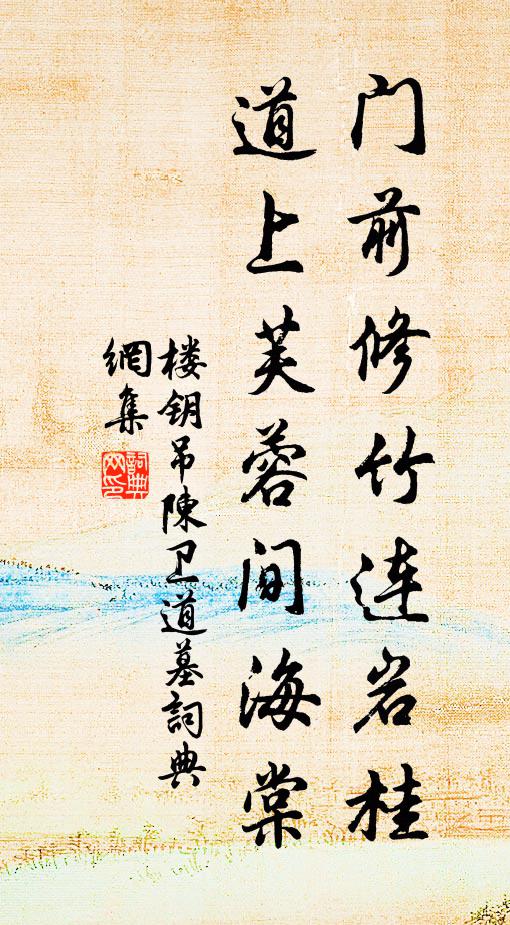 门前修竹连岩桂
道上芙蓉间海棠
楼钥吊陳卫道墓詞典
網集
詞典
网印